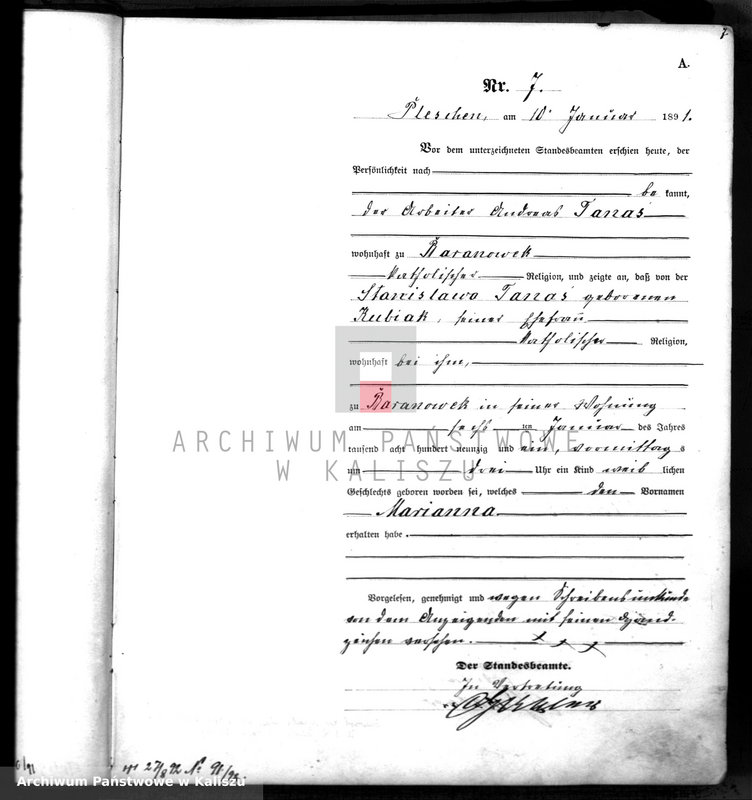 7
A.
Nr. 7.
Pleschen, am 10. Januar 1891.
Vor dem unterzeichneten Standesbeamten erschien heute, der
Persönlichkeit nach
be kannt,
der Arbeiter Andreas Tanaś
wohnhaft zu Baranowek
katholischer Religion, und zeigte an, daß von der
Stanislawa Tanaś geborenen
Kubiak, seiner Ehefrau
katholischer Religion,
wohnhaft bei ihm,
zu Baranowek in seiner Wohnung
am sechsten Januar des Jahres
tausend acht hundert neunzig und ein, vormittags
um drei Uhr ein Kind weib lichen
Geschlechts geboren worden sei, welches den Vornamen
Marianna
erhalten habe.
Vorgelesen, genehmigt und wegen Schreibensunkunde
von dem Anzeigenden mit seinen Hand-
zeichen versehen. + + +
Der Standesbeamte.
In Vertretung
ARCHIWUM PAŃSTWOWE
W KALISZU
27/8 92 No 91/92.
Archiwum Państwowe w Kaliszu